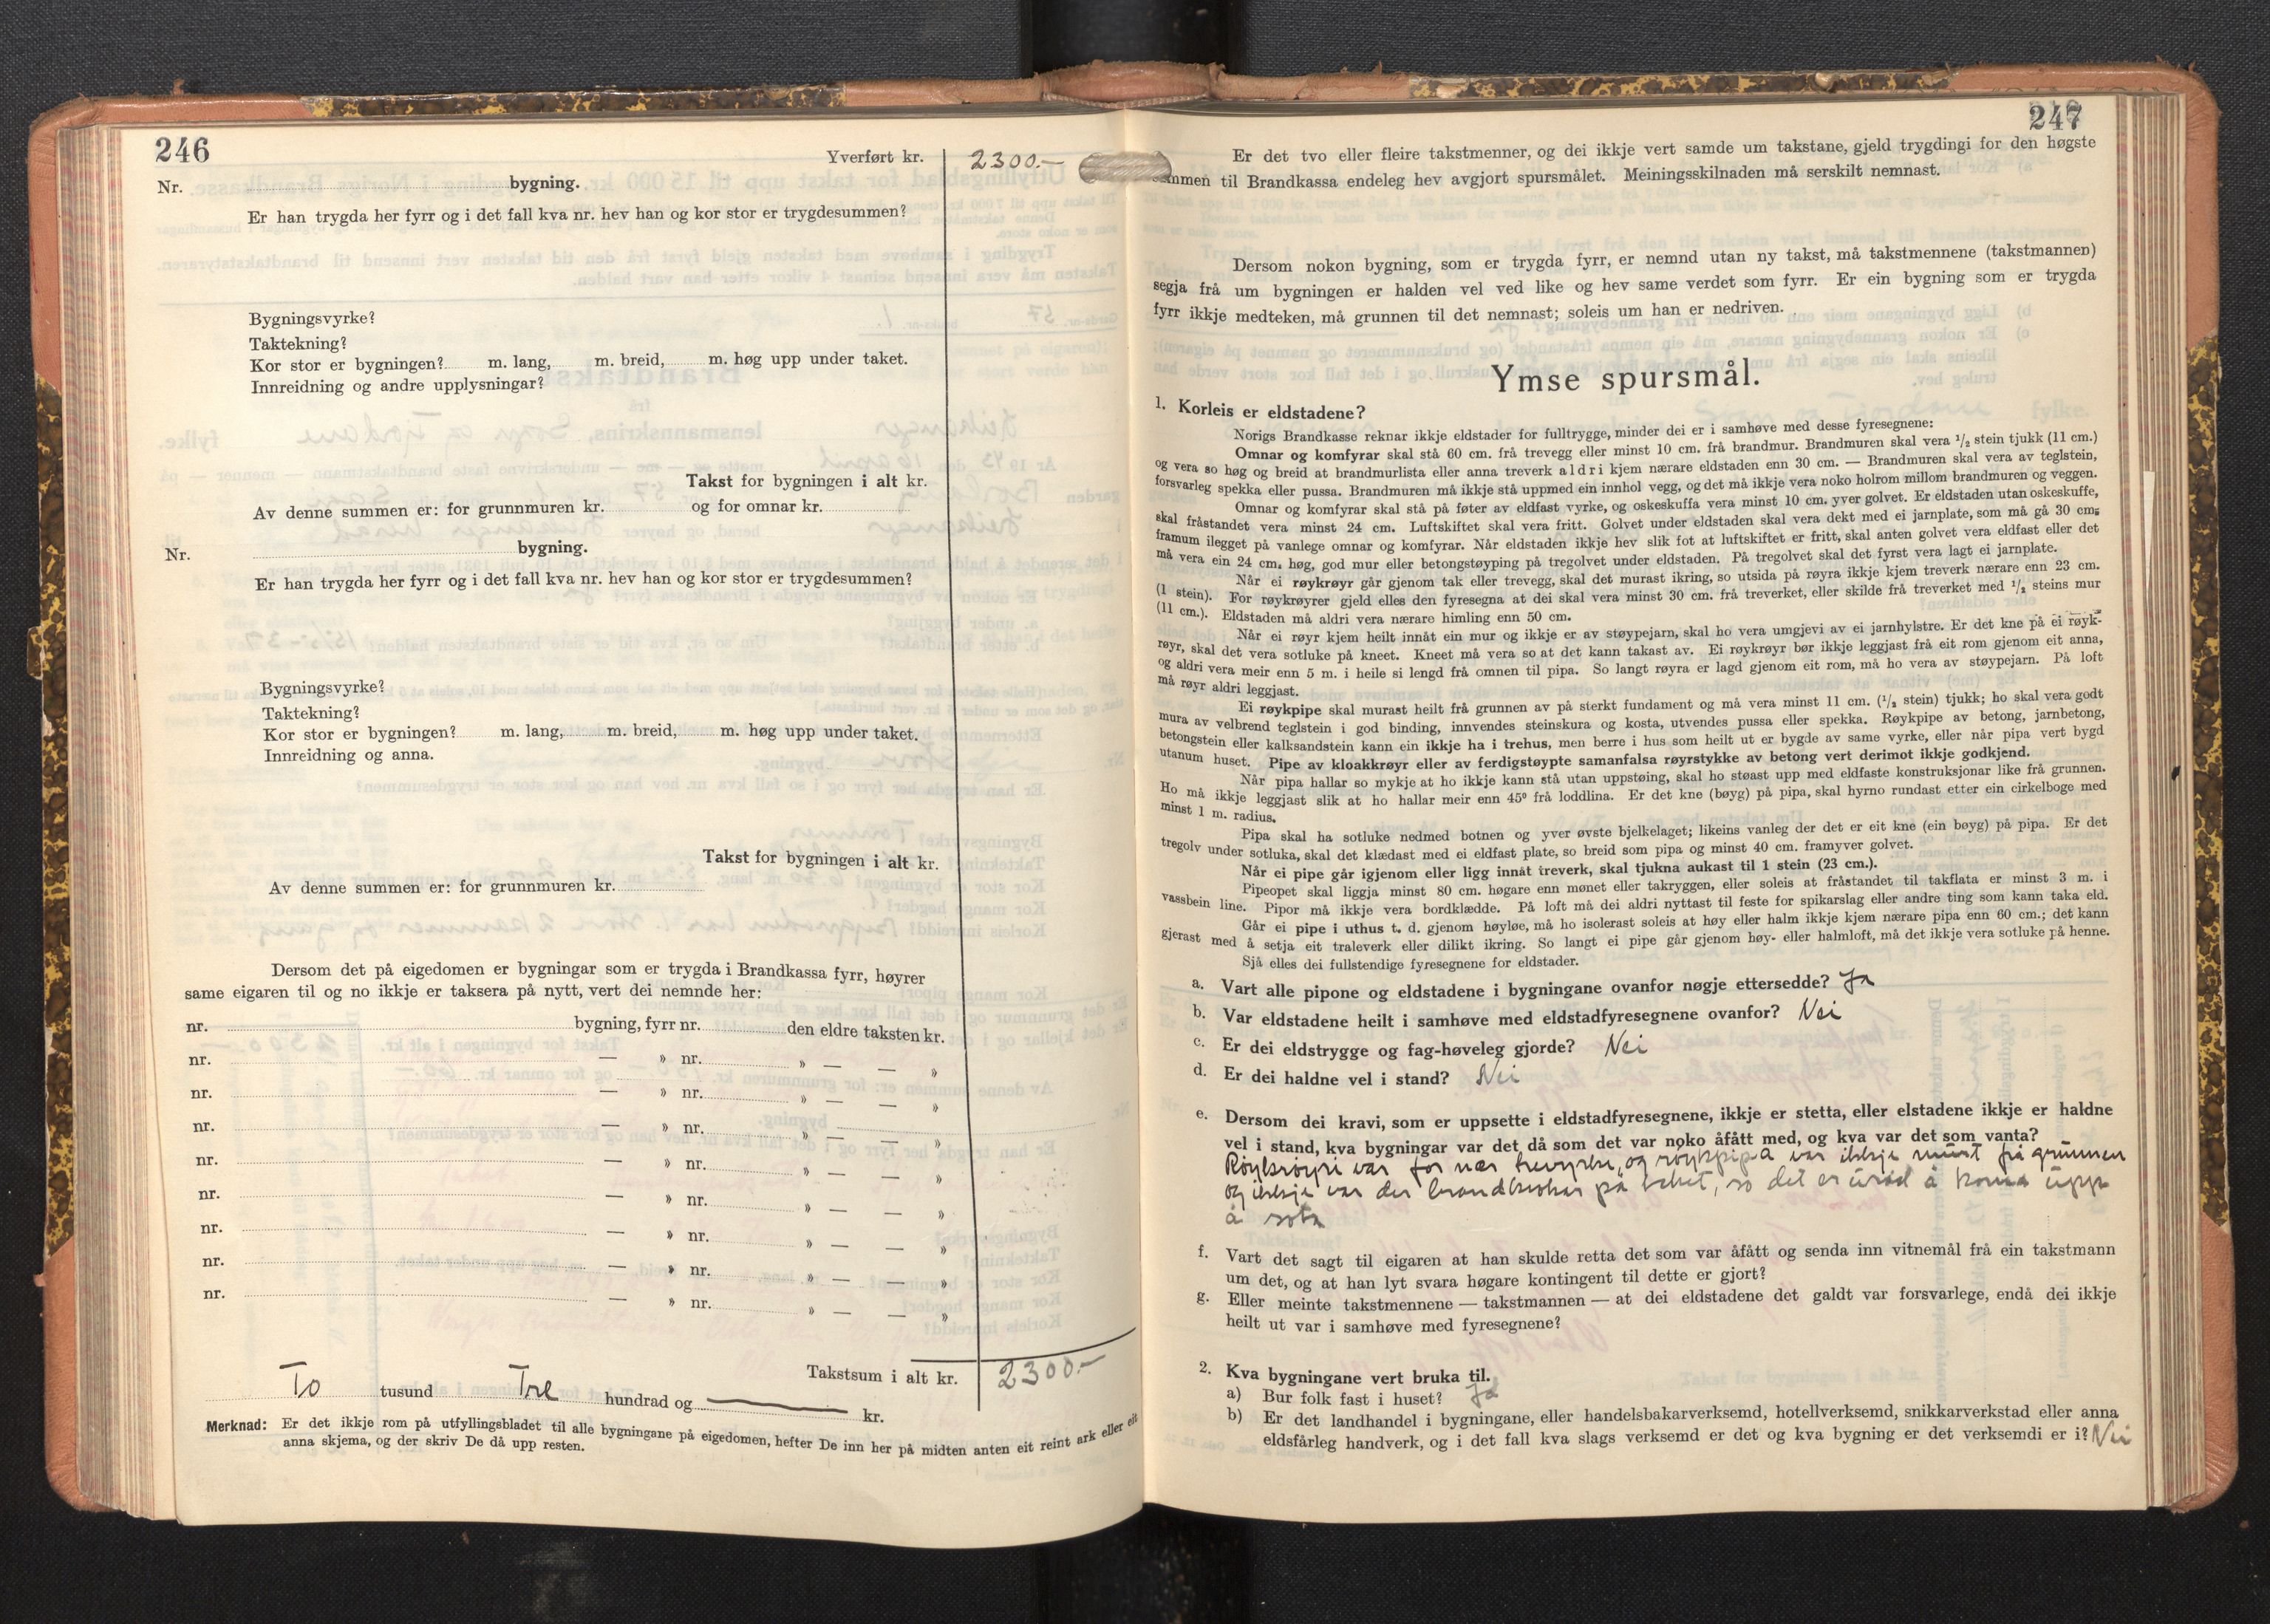 246
Yverført kr. 2300.-
Nr. bygning.
Er han trygda her fyrr og i det fall kva nr. hev han og kor stor er trygdesummen?
Bygningsvyrke?
Taktekning?
Kor stor er bygningen? m. lang, m. breid, m. høg upp under taket.
Innreidning og andre upplysningar?
Takst for bygningen i alt kr.
Av denne summen er: for grunnmuren kr. og for omnar kr.
Nr. bygning.
Er han trygda her fyrr og i det fall kva nr. hev han og kor stor er trygdesummen?
Bygningsvyrke?
Taktekning?
Kor stor er bygningen? m. lang, m. breid, m. høg upp under taket.
Innreidning og anna.
Takst for bygningen i alt kr.
Av denne summen er: for grunnmuren kr.
Dersom det på eigedomen er bygningar som er trygda i Brandkassa fyrr, høyrer
same eigaren til og no ikkje er taksera på nytt, vert dei nemnde her:
nr. bygning, fyrr nr. den eldre taksten kr.
nr. — » nr. » — — »
nr. — » nr. » — — »
nr. — » nr. » — — »
nr. — » nr. » — — »
nr. — » nr. » — — »
nr. — » nr. » — — »
nr. — » nr. » — — »
nr. — » nr. » — — »
Takstsum i alt kr. 2300-
To tusund Tre hundrad og — kr.
Merknad: Er det ikkje rom på utfyllingsbladet til alle bygningane på eigedomen, hefter De inn her på midten anten eit reint ark eller eit
anna skjema, og der skriv De då upp resten.
247
Er det tvo eller fleire takstmenner, og dei ikkje vert samde um takstane, gjeld trygdingi for den høgste
summen til Brandkassa endeleg hev avgjort spursmålet. Meiningsskilnaden må serskilt nemnast.
Dersom nokon bygning, som er trygda fyrr, er nemnd utan ny takst, må takstmennene (takstmannen)
segja frå um bygningen er halden vel ved like og hev same verdet som fyrr. Er ein bygning som er trygda
fyrr ikkje medteken, må grunnen til det nemnast; soleis um han er nedriven.
Ymse spursmål.
1. Korleis er eldstadene?
Norigs Brandkasse reknar ikkje eldstader for fulltrygge, minder dei er i samhøve med desse fyresegnene:
Omnar og komfyrar skal stå 60 cm. frå trevegg eller minst 10 cm. frå brandmur. Brandmuren skal vera ½ stein tjukk (11 cm.)
og vera so høg og breid at brandmurlista eller anna treverk aldri kjem nærare eldstaden enn 30 cm. — Brandmuren skal vera av teglstein,
forsvarleg spekka eller pussa. Brandmuren må ikkje stå uppmed ein innhol vegg, og det må ikkje vera noko holrom millom brandmuren og veggen.
Omnar og komfyrar skal stå på føter av eldfast vyrke, og oskeskuffa vera minst 10 cm. yver golvet. Er eldstaden utan oskeskuffe,
skal fråstandet vera minst 24 cm. Luftskiftet skal vera fritt. Golvet under eldstaden skal vera dekt med ei jarnplate, som må gå 30 cm.
framum ilegget på vanlege omnar og komfyrar. Når eldstaden ikkje hev slik fot at luftskiftet er fritt, skal anten golvet vera eldfast eller det
må vera ein 24 cm. høg, god mur eller betongstøyping på tregolvet under eldstaden. På tregolvet skal det fyrst vera lagt ei jarnplate.
Når ei røykrøyr går gjenom tak eller trevegg, skal det murast ikring, so utsida på røyra ikkje kjem treverk nærare enn 23 cm.
(1 stein). For røykrøyrer gjeld elles den fyresegna at dei skal vera minst 30 cm. frå treverket, eller skilde frå treverket med ½ steins mur
(11 cm.). Eldstaden må aldri vera nærare himling enn 50 cm.
Når ei røyr kjem heilt innåt ein mur og ikkje er av støypejarn, skal ho vera umgjevi av ei jarnhylstre. Er det kne på ei røyk-
røyr, skal det vera sotluke på kneet. Kneet må vera so at det kann takast av. Ei røykrøyr bør ikkje leggjast frå eit rom gjenom eit anna,
og aldri vera meir enn 5 m. i heile si lengd frå omnen til pipa. So langt røyra er lagd gjenom eit rom, må ho vera av støypejarn. På loft
må røyr aldri leggjast.
Ei røykpipe skal murast heilt frå grunnen av på sterkt fundament og må vera minst 11 cm. (½ stein) tjukk; ho skal vera godt
mura av velbrend teglstein i god binding, innvendes steinskura og kosta, utvendes pussa eller spekka. Røykpipe av betong, jarnbetong,
betongstein eller kalksandstein kann ein ikkje ha i trehus, men berre i hus som heilt ut er bygde av same vyrke, eller når pipa vert bygd
utanum huset. Pipe av kloakkrøyr eller av ferdigstøypte samanfalsa røyrstykke av betong vert derimot ikkje godkjend.
Når pipa hallar so mykje at ho ikkje kann stå utan uppstøing, skal ho støast upp med eldfaste konstruksjonar like frå grunnen.
Ho må ikkje leggjast slik at ho hallar meir enn 45° frå loddlina. Er det kne (bøyg) på pipa, skal hyrno rundast etter ein cirkelboge med
minst 1 m. radius.
Pipa skal ha sotluke nedmed botnen og yver øvste bjelkelaget; likeins vanleg der det er eit kne (ein bøyg) på pipa. Er det
tregolv under sotluka, skal det klædast med ei eldfast plate, so breid som pipa og minst 40 cm. framyver golvet.
Når ei pipe går igjenom eller ligg innåt treverk, skal tjukna aukast til 1 stein (23 cm.).
Pipeopet skal liggja minst 80 cm. høgare enn mønet eller takryggen, eller soleis at fråstandet til takflata er minst 3 m. i
vassbein line. Pipor må ikkje vera bordklædde. På loft må dei aldri nyttast til feste for spikarslag eller andre ting som kann taka eld.
Går ei pipe i uthus t. d. gjenom høyløe, må ho isolerast soleis at høy eller halm ikkje kjem nærare pipa enn 60 cm.; det kann
gjerast med å setja eit traleverk eller dilikt ikring. So langt ei pipe går gjenom høy- eller halmloft, må det ikkje vera sotluke på henne.
Sjå elles dei fullstendige fyresegnene for eldstader.
a. Vart alle pipone og eldstadene i bygningane ovanfor nøgje ettersedde? Ja
b. Var eldstadene heilt i samhøve med eldstadfyresegnene ovanfor? Nei
c. Er dei eldstrygge og fag-høveleg gjorde? Nei
d. Er dei haldne vel i stand? Nei
e. Dersom dei kravi, som er uppsette i eldstadfyresegnene, ikkje er stetta, eller elstadene ikkje er haldne
vel i stand, kva bygningar var det då som det var noko åfått med, og kva var det som vanta?
Røykrøyri var for nær trevyrke, og røykpipa var ikkje murt frå grunnen
og ikkje var der brandkrokar på taket, so det er uråd å koma upp
å sota
f. Vart det sagt til eigaren at han skulde retta det som var åfått og senda inn vitnemål frå ein takstmann
um det, og at han lyt svara høgare kontingent til dette er gjort?
g. Eller meinte takstmennene — takstmannen — at dei eldstadene det galdt var forsvarlege, endå dei ikkje
heilt ut var i samhøve med fyresegnene?
2. Kva bygningane vert bruka til.
a) Bur folk fast i huset? Ja
b) Er det landhandel i bygningane, eller handelsbakarverksemd, hotellverksemd, snikkarverkstad eller anna
eldsfårleg handverk, og i det fall kva slags verksemd er det og kva bygning er det verksemdi er i? Nei